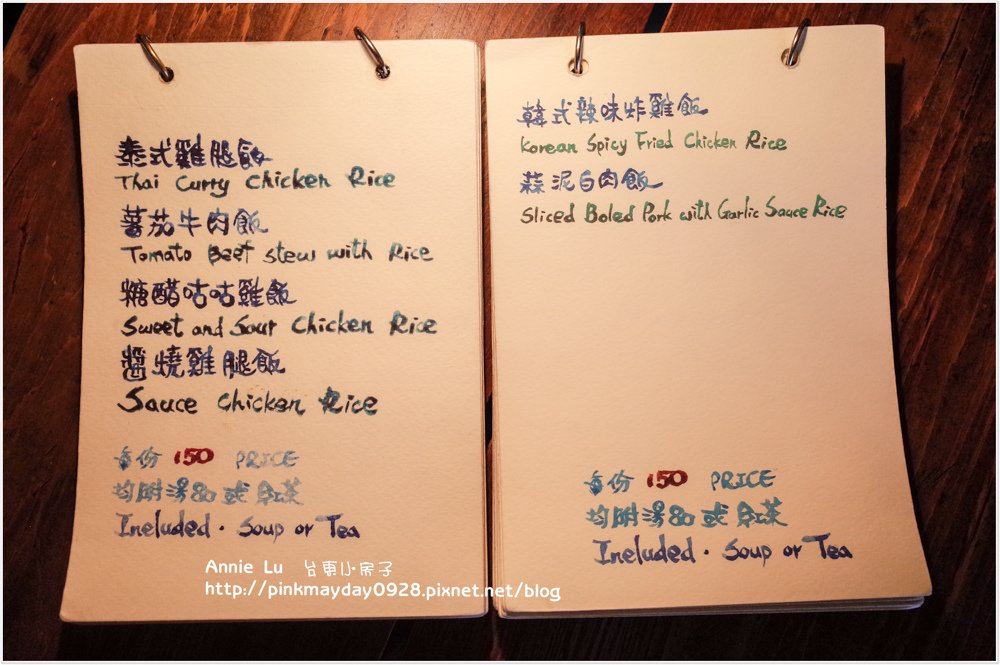 泰式雞腿飯
Thai Curry Chicken Rice
蕃茄牛肉飯
Tomato Beef Stew with Rice
糖醋咕咕雞飯
Sweet and Sour Chicken Rice
醬燒雞腿飯
Sauce Chicken Rice
每份 150 PRICE
均附湯or或紅茶
Included · Soup or Tea
韓式辣味炸雞飯
Korean Spicy Fried Chicken Rice
蒜泥白肉飯
Sliced Boled Pork with Garlic Sauce Rice
每份 150 PRICE
均附湯 或 紅茶
Included · Soup or Tea
Annie Lu 台東小房子
http://pinkmayday0928.pixnet.net/blog